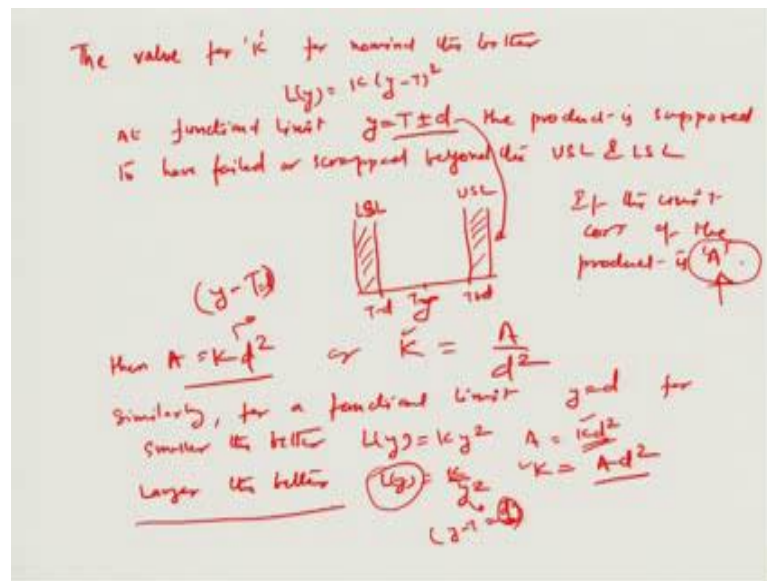 The value for 'K' for nominal the better
L(y) = K(y-T)²
At functional limit y=T±d the product is supposed
to have failed or scrapped beyond the USL & LSL
LSL USL
If the unit
cost of the
product is 'A'.
(y-T)
T-d T y T+d
then A = Kd² or K = A/d²
Similarly, for a functional limit y=d for
smaller the better L(y) = ky² A = Kd²
Larger the better L(y) = K/y² K = Ad²